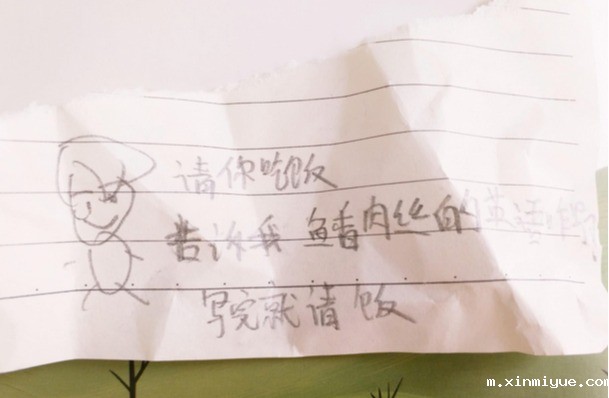 请你吃饭
告诉我 鱼香肉丝的英语
写完就请饭
m.xinmiyue.com